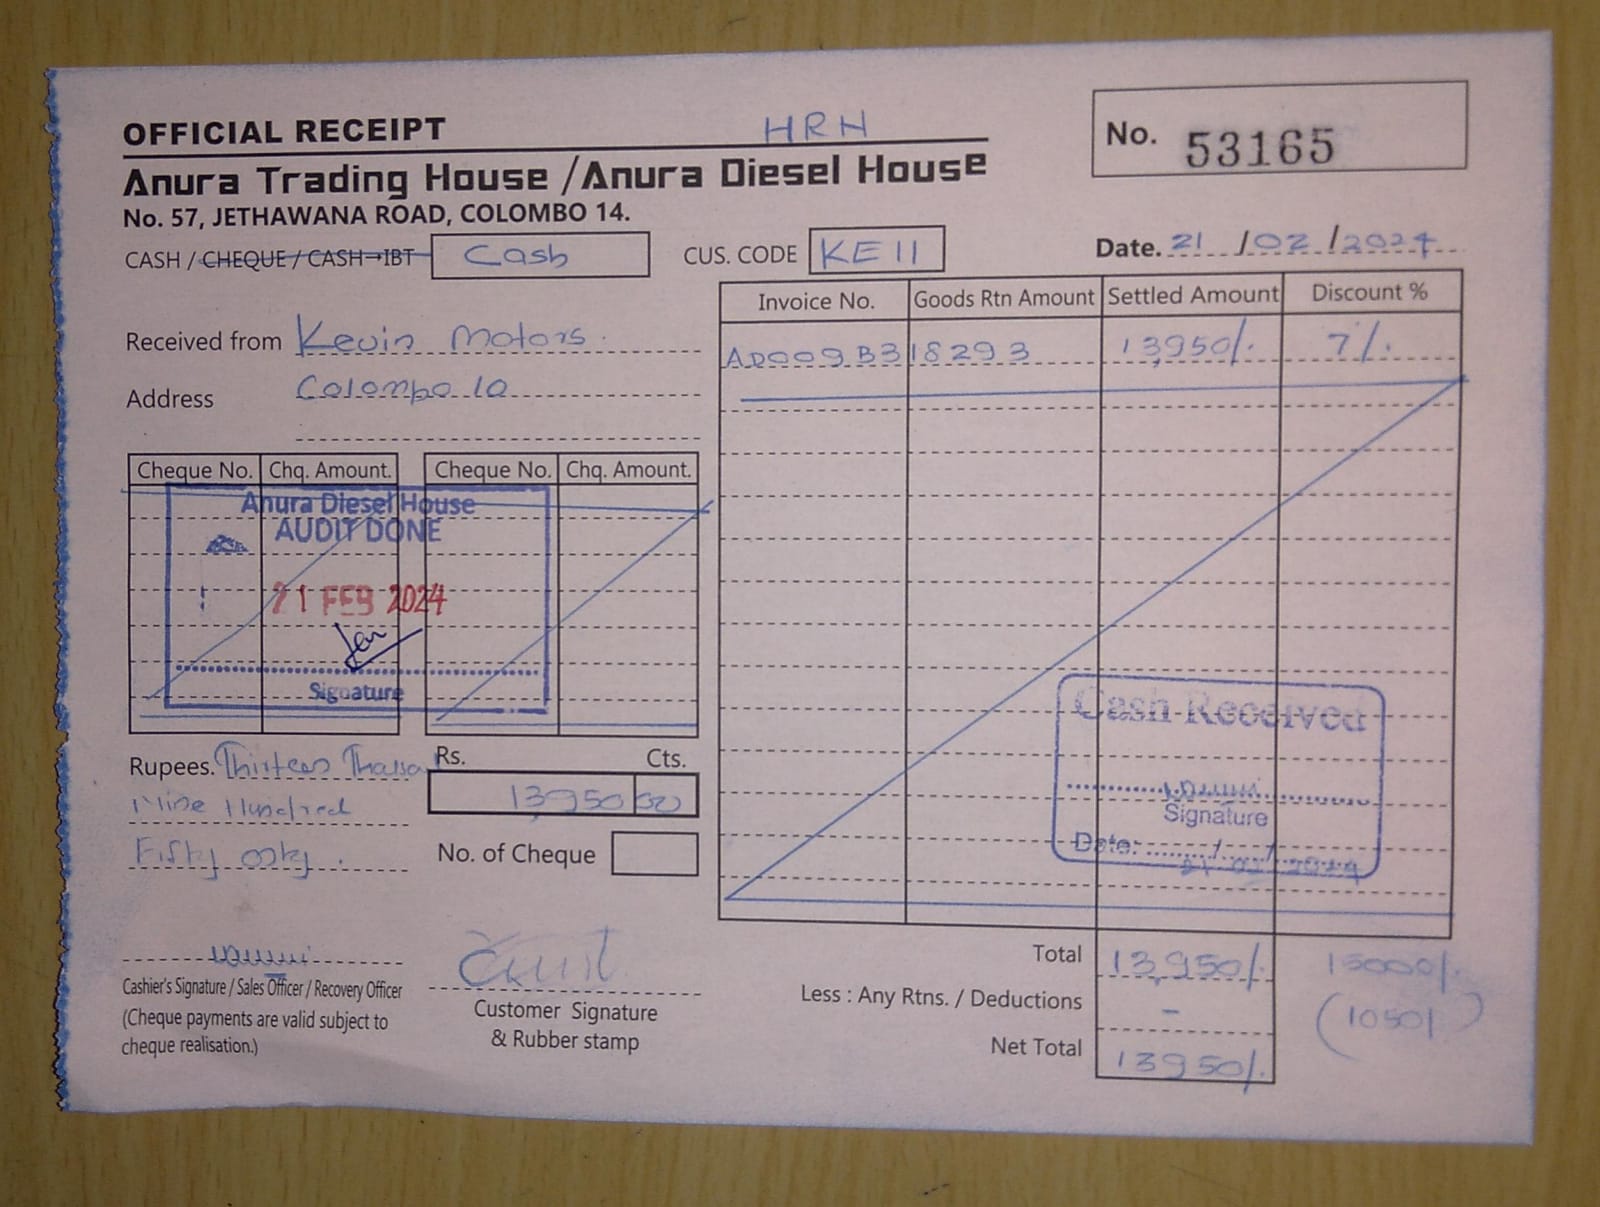 OFFICIAL RECEIPT
HRH
No. 53165
Anura Trading House / Anura Diesel House
No. 57, JETHAWANA ROAD, COLOMBO 14.
CASH / CHEQUE / CASH-IBT Cash
CUS. CODE KE11
Date. 21/02/2024
Received from Kevin Motors.
Address Colombo 10
Invoice No. Goods Rtn Amount Settled Amount Discount %
AD009B318293 13,950/. 7%.
Cheque No. Chq. Amount. Cheque No. Chq. Amount.
Anura Diesel House
AUDIT DONE
21 FEB 2024
Signature
Cash Received
Signature
Date: 21/02/2024
Rupees. Thirteen
Nine Hundred
Fifty only.
Rs. Cts.
13,950 00
No. of Cheque
Cashier's Signature / Sales Officer / Recovery Officer
(Cheque payments are valid subject to
cheque realisation.)
Customer Signature
& Rubber stamp
Total 13,950/. 15000/.
Less : Any Rtns. / Deductions - (1050/)
Net Total 13950/.